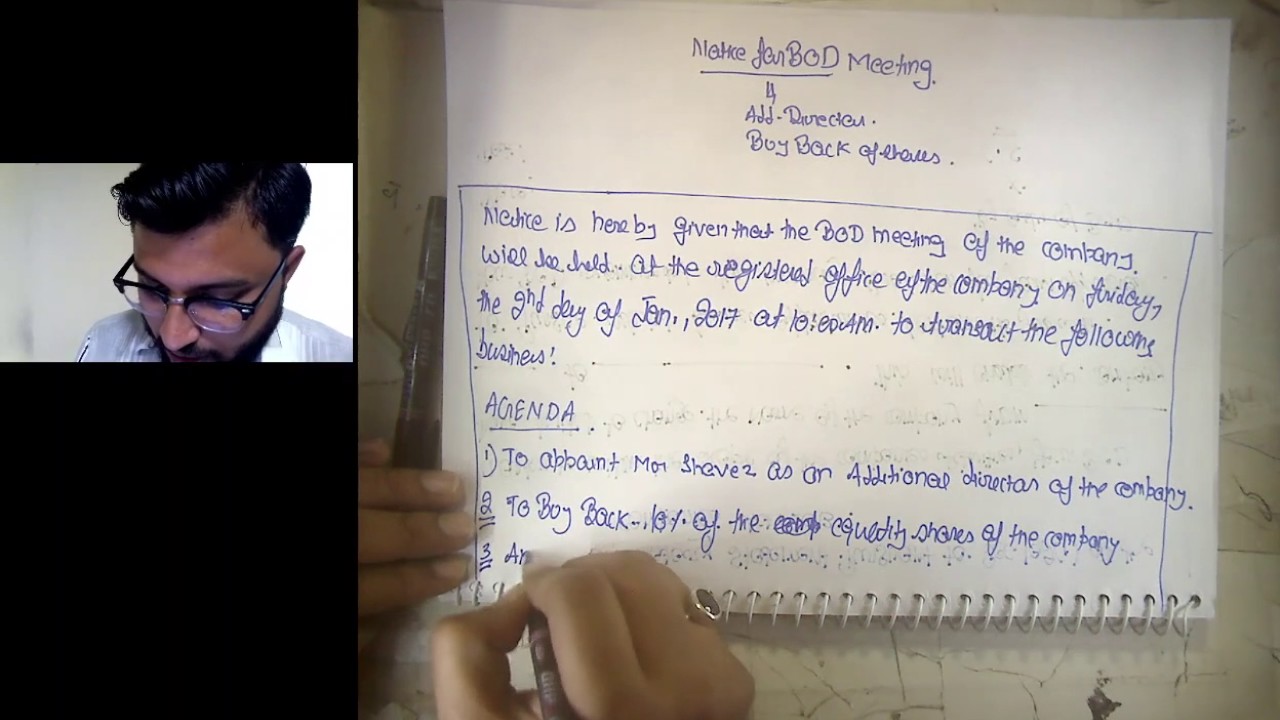 Notice for BOD Meeting.
Add-Director.
Buy Back of shares.
Notice is hereby given that the BOD meeting of the company.
will be held. at the registered office of the company on friday,
the 2nd day of Jan., 2017 at 10:00 Am. to transact the following
business!
AGENDA.
1) To appoint Mr Shavez as an Additional director of the company.
2 To Buy Back 10% of the equity shares of the company
3 An